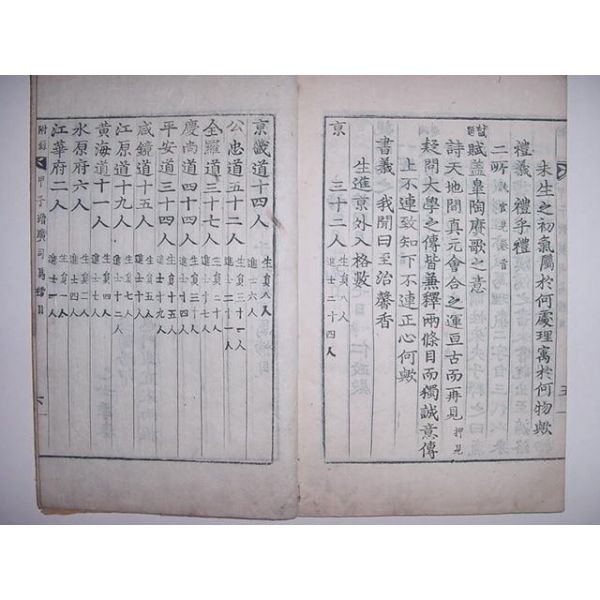 未生之初氣屬於何處理寓於何物歟
禮義 禮乎禮
二所
試題
賦蓋皐陶賡歌之意
詩天地間真元會合之運亘古而一再見 押見
疑問大學之傳皆兼釋兩條目而獨誠意傳
上不連致知下不連正心何歟
書義 我聞曰至治馨香
生進京外入格數
京 三十二人 生員八人 進士二十四人
京畿道十四人 生員八人 進士六人
公忠道五十二人 生員三十一人 進士二十一人
全羅道三十七人 生員 進士
慶尚道四十四人 生員 進士
平安道三十四人 生員十五人 進士十九人
咸鏡道十五人 生員五人 進士十人
江原道十九人 生員七人 進士十二人
黃海道十一人 生員四人 進士七人
水原府六人 生員二人 進士四人
江華府二人
附錄 甲子增廣司馬榜目 六